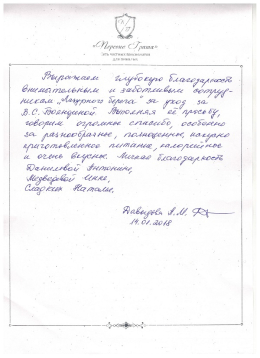 «Первая Грань»
Выражаем глубокую благодарность
внимательным и заботливым сотруд-
никам "Лазурного берега" за уход за
В.С. Воениной. Выполняя её просьбу,
говорим огромное спасибо, особенно
за разнообразное, полноценное, искусно
приготовленное питание, калорийное
и очень вкусное. Личная благодарность
Даниловой Антонине,
Медведевой Инне,
Сладких Наталии.
Давыдова А.М.
14.01.2018